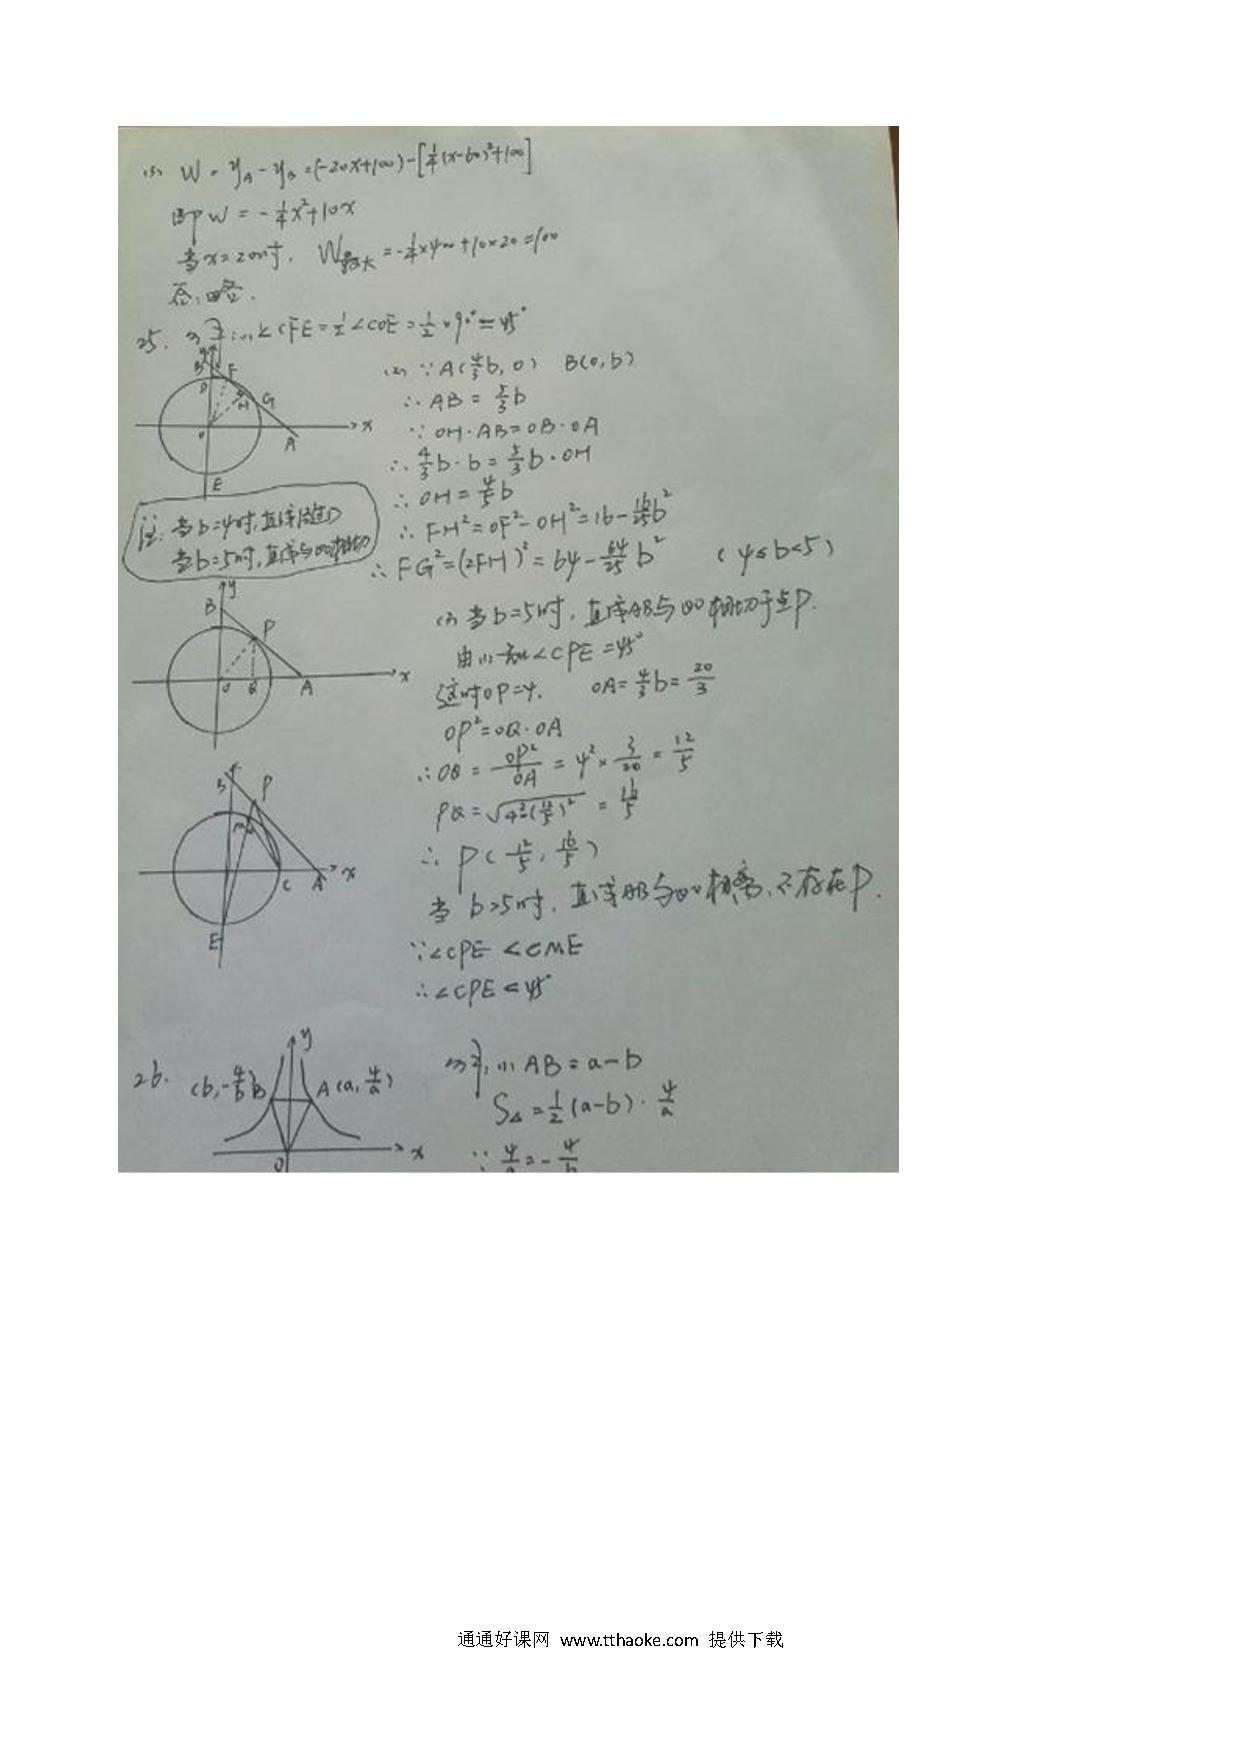 (3) W = yA - yB = (-20x+100) - [¼(x-60)²+100]
即 W = -¼x²+10x
当x=20时, W最大 = -¼×400+10×20=100
答:略.
25. 解:(1) ∠CFE = ½∠COE = ½×90° = 45°
B F
D H G
O A x
E
(2) ∵ A(4/3b, 0) B(0, b)
∴ AB = 5/3b
∵ OH·AB = OB·OA
∴ 4/3b·b = 5/3b·OH
∴ OH = 4/5b
∴ FH² = OF² - OH² = 16 - 16/25b²
∴ FG² = (2FH)² = 64 - 64/25b² (4≤b<5)
注: 当b=4时,直线过D
当b=5时,直线与⊙O相切
y
B P
O Q A x
(3) 当b=5时, 直线AB与⊙O相切于点P.
由(1)知∠CPE=45°
这时OP=4. OA=4/3b=20/3
OP²=OQ·OA
∴ OQ = OP²/OA = 4²×3/20 = 12/5
PQ = √4²-(12/5)² = 16/5
∴ P(12/5, 16/5)
B P
M
C A x
E
当 b>5时, 直线AB与⊙O相离, 不存在P.
∵ ∠CPE < ∠CME
∴ ∠CPE < 45°
26.
y
(b, -4/b) B A (a, 4/a)
O x
解:(1) AB = a-b
S△ = ½(a-b)·4/a
∵ 4/a = -4/b
通通好课网 www.tthaoke.com 提供下载